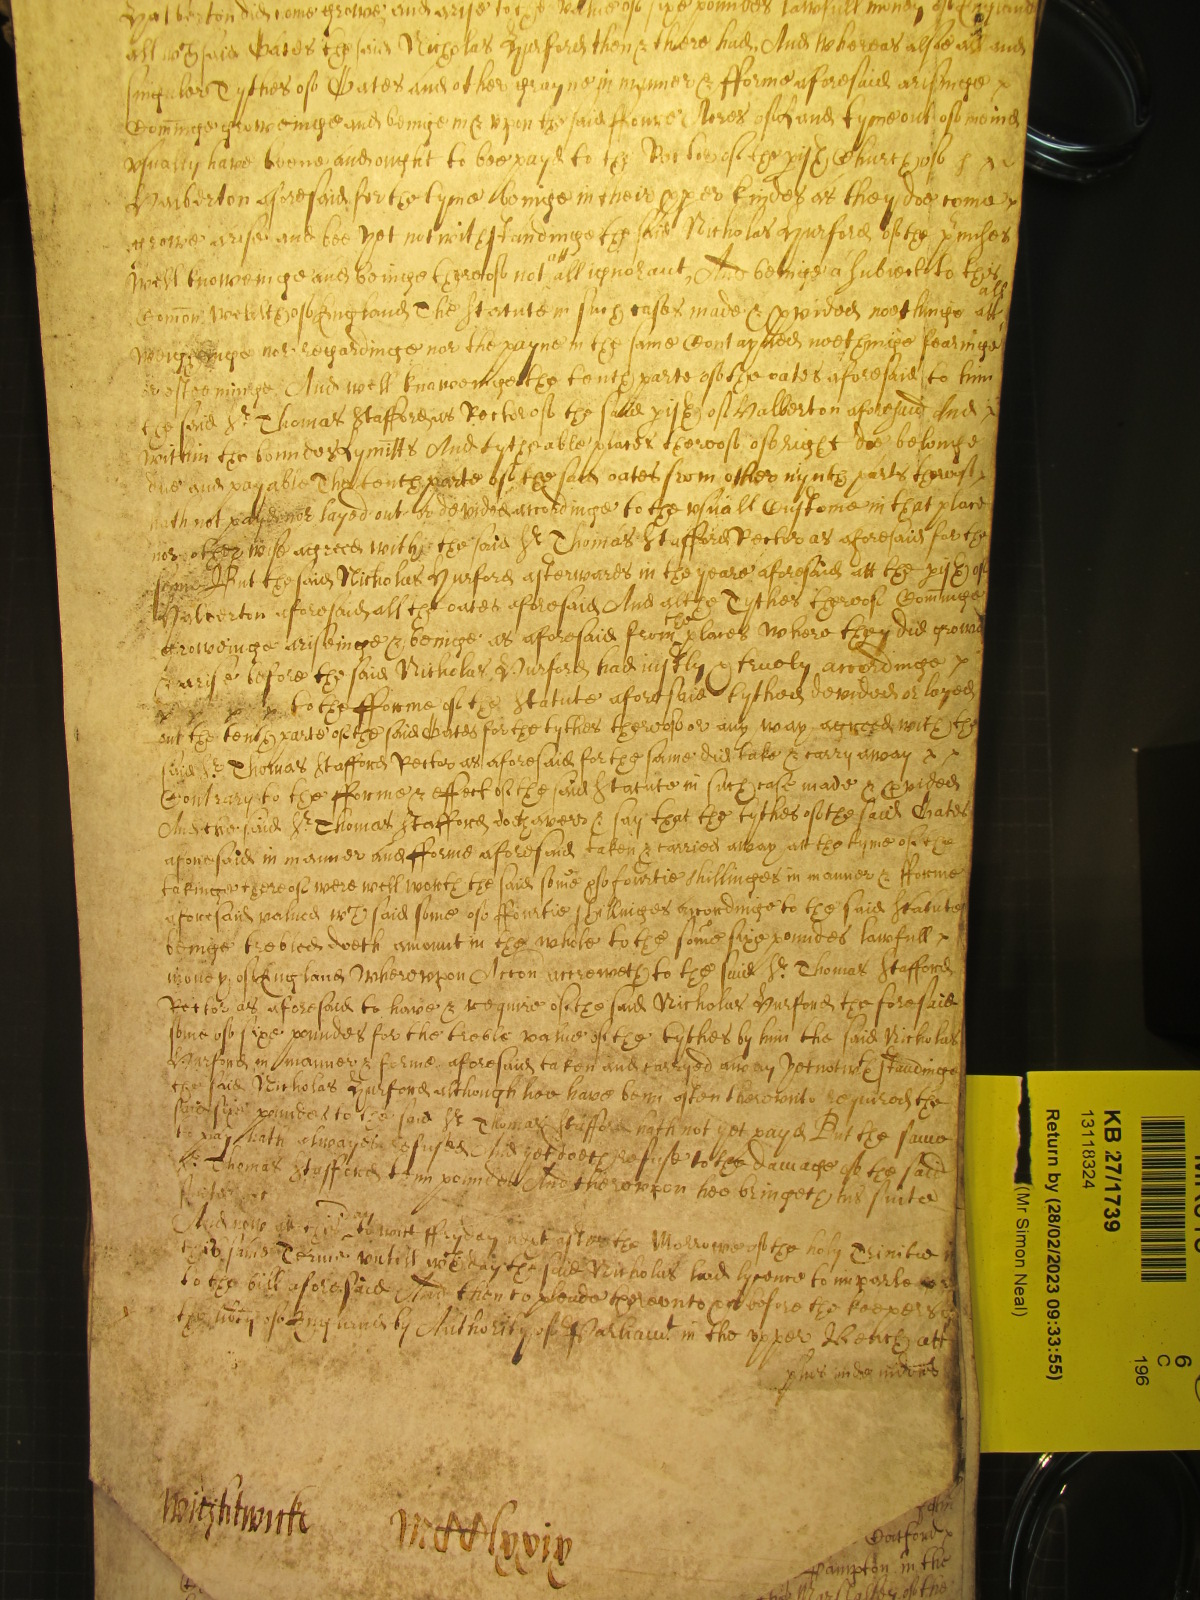 Halberton did come growe and arise to the value of sixe poundes lawfull money of England
all wch said Oates the said Nicholas Hurford then & there had And whereas alsoe all and
singuler Tythes of Oates and other grayne in manner & fforme aforesaid ariseinge x
Com̄inge groweinge and beinge in & vpon the said ffowre Acres of land tyme out of meind
vsually have beene and ought to bee payd to the Rector of the pish Church of
Halberton aforesaid for the tyme beinge in their pper kindes as they doe come x
growe arise and bee yet notwithstandinge the said Nicholas Hurford of the pmises
well knoweinge and beinge thereof not att all ignorant, And beinge a Subiect to this
Com̄on wealth of England The Statute in such cases made & pvided noethinge att all
weigheinge nor regardinge nor the payne in the same Contayned noethinge fearinge
or esteeminge And well knoweinge the tenth parte of the oates aforesaid to him
the said Sr Thomas Stafford as Rector of the said pish of Halberton aforesaid And x
within the boundes lymitts And tytheable places thereof of right doe belonge
due and payable The tenth parte of the said oates from other nynth parts thereof
hath not payd nor layed out or devided accordinge to the vsuall Custome in that place
nor otherwise agreed with the said Sr Thomas Stafford Rector as aforesaid for the
same But the said Nicholas Hurford afterwards in the yeare aforesaid att the pish of
Halberton aforesaid all the oates aforesaid And all the Tythes thereof Com̄inge
groweinge ariseinge & beinge as aforesaid from the places where they did growe
& arise before the said Nicholas Hurford had iustly & truely accordinge x
x x x to the fforme of the Statute aforesaid tythed devided or layed
out the tenth parte of the said Oates for the tythes thereof or any way agreed with the
said Sr Thomas Stafford Rector as aforesaid for the same did take & carry away x x
Contrary to the fforme & effect of the said Statute in such case made & pvided
And the said Sr Thomas Stafford doth averr & say that the tythes of the said Oates
aforesaid in manner and fforme aforesaid taken & carried away att the tyme of the
takinge thereof were well worth the said some of fourtie shillinges in manner & fforme
aforesaid valued wch said some of ffourtie shillinges accordinge to the said Statute
beinge trebled doeth amount in the whole to the some sixe poundes lawfull x
money of England Wherevpon Accōn accreweth to the said Sr Thomas Stafford
Rector as aforesaid to have & require of the said Nicholas Hurford the foresaid
some of sixe poundes for the treble value of the tythes by him the said Nicholas
Hurford in manner & forme aforesaid taken and carryed away yet notwthstandinge
the said Nicholas Hurford although hee have been often therevnto required the
said sixe poundes to the said Sr Thomas Stafford hath not yet payd But the same
to pay hath alwayes refused And yet doeth refuse to the damage of the said
Sr Thomas Stafford tenn poundes And therevpon hee bringeth his suite
And now att this day to witt ffryday next after the Morrowe of the holy Trinitie
this same Terme vntill wch day the said Nicholas had lycence to imparle
to the bill aforesaid And then to pleade therevnto &c before the keepers
the libty of England by Authority of Parliamt in the vpper Bench att
plus inde indors
Wightwick
lxxix
Hampton in the
KB 27/1739
13118324
Return by (28/02/2023 09:33:55)
(Mr Simon Neal)
6
C
196